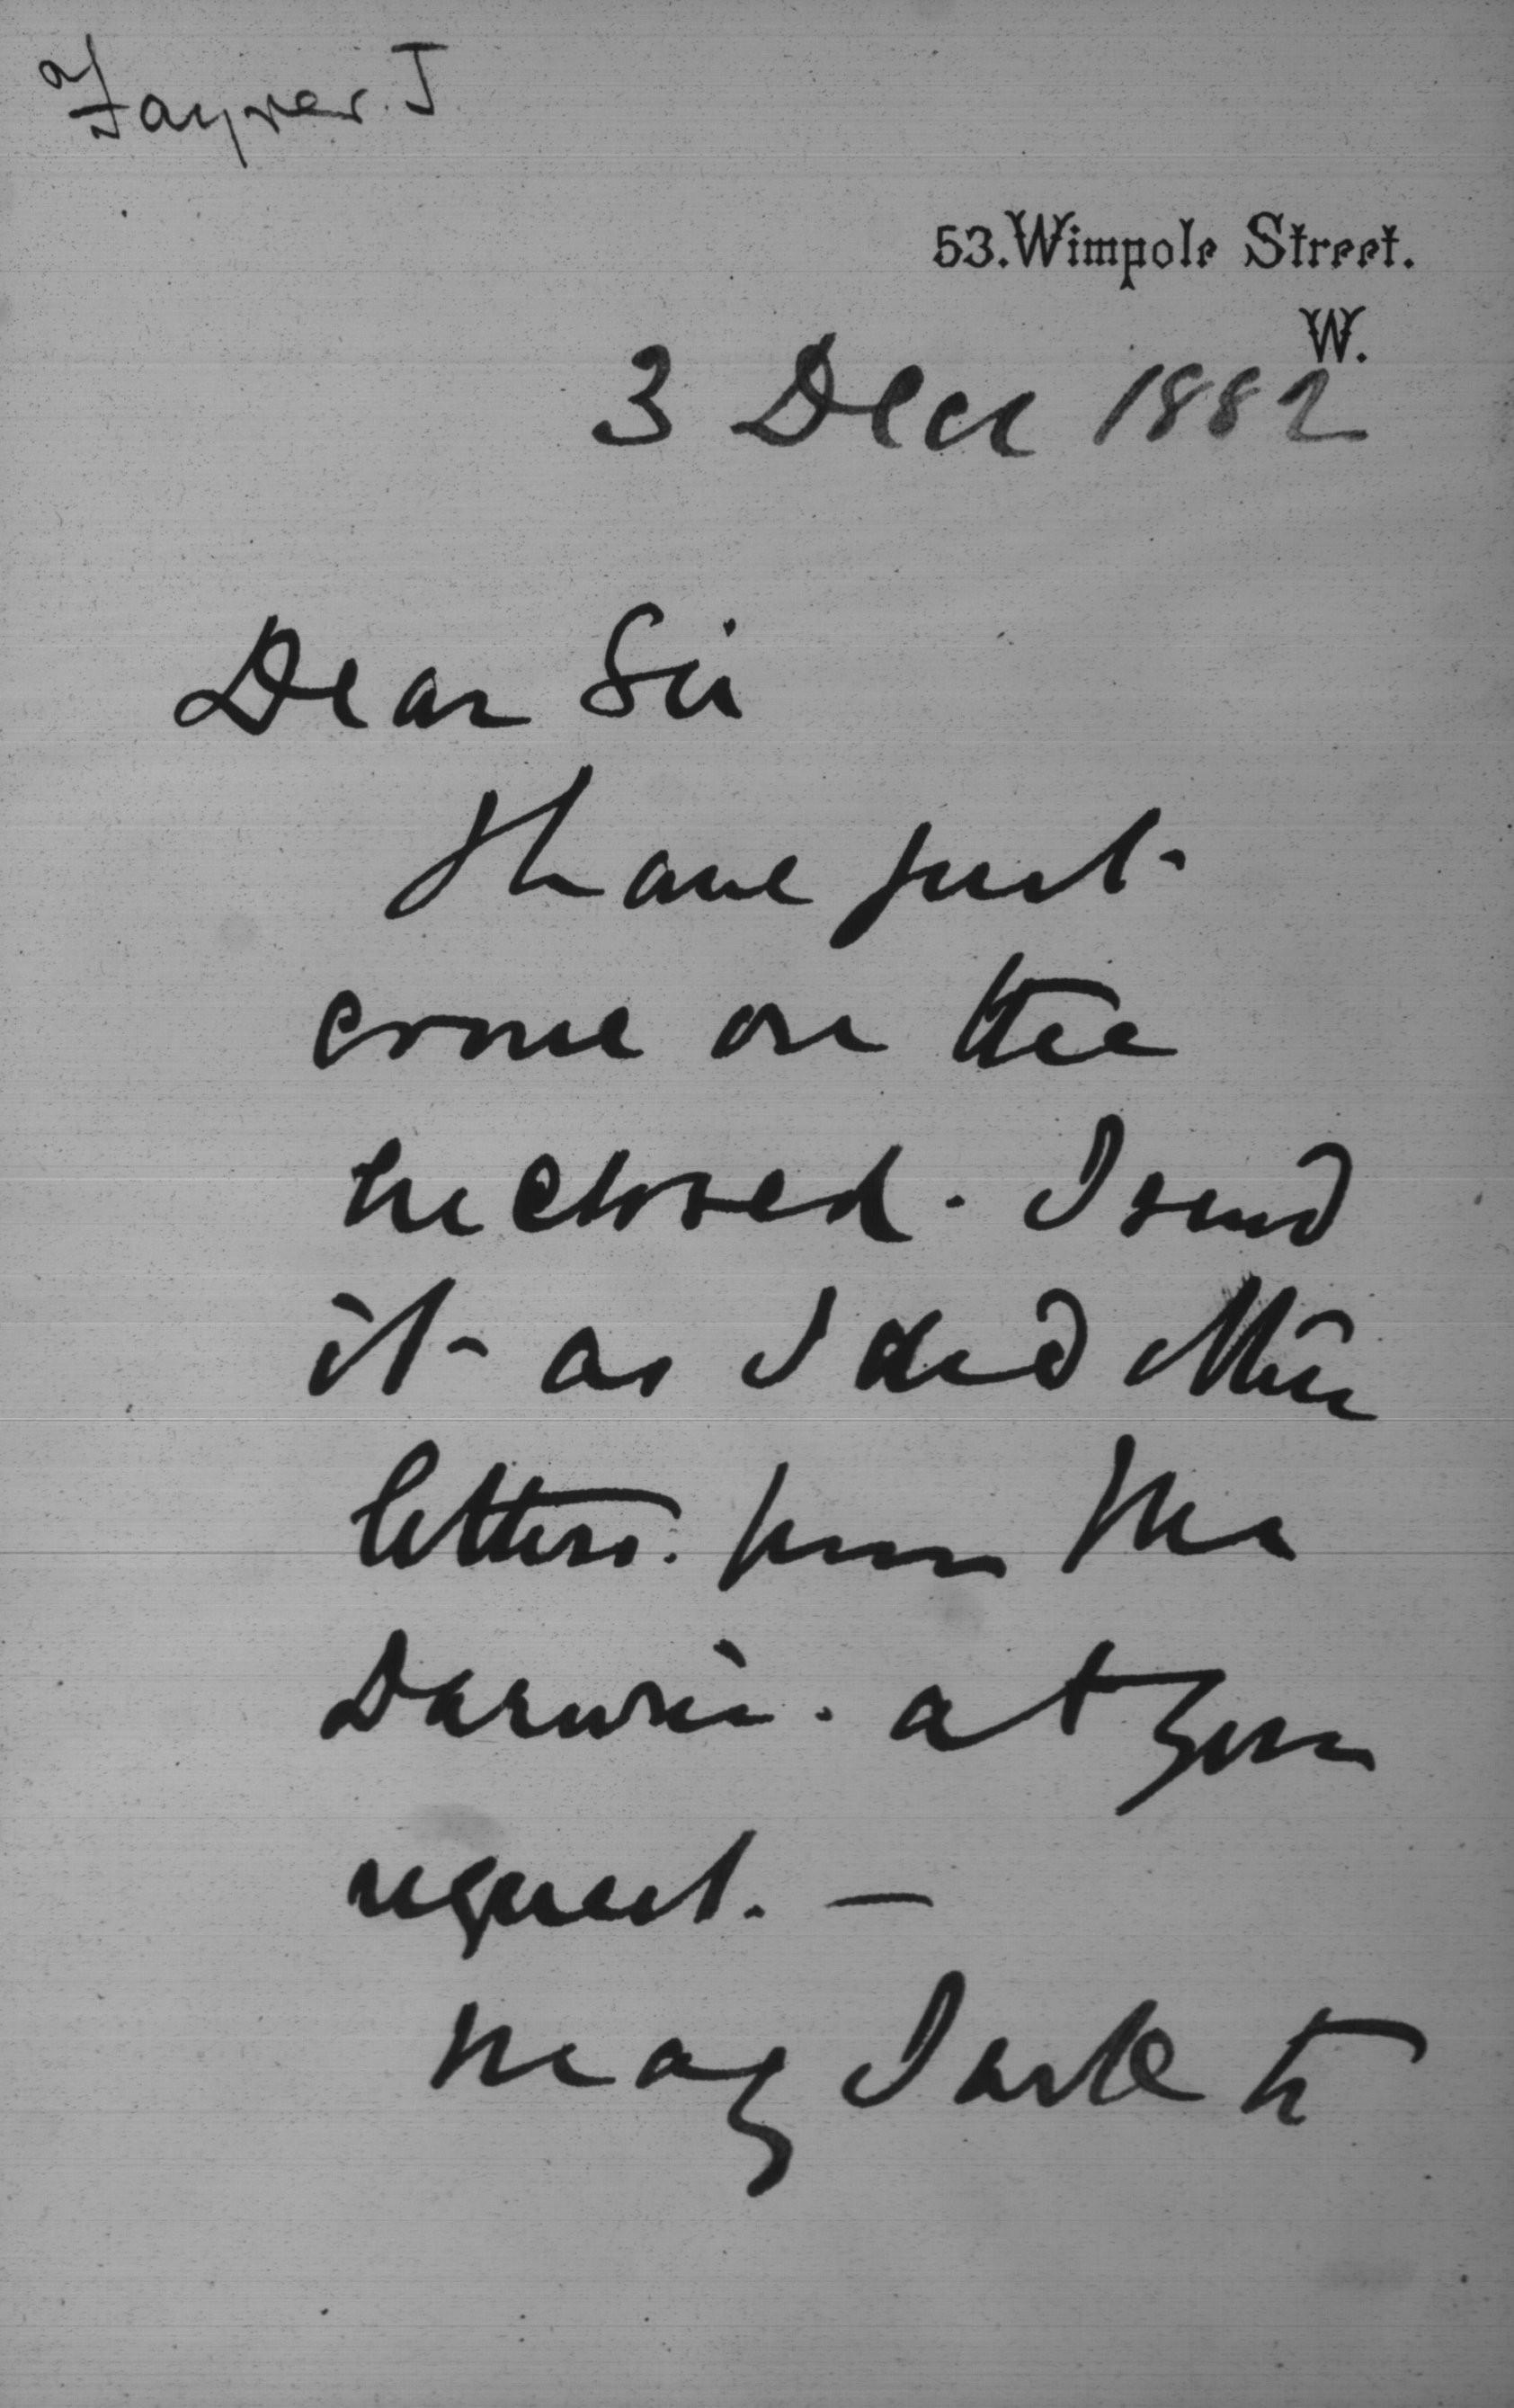 Fayrer. J
53. Wimpole Street.
W.
3 Dec 1882
Dear Sir
I have just
come on the
inclosed. I send
it as I did
letters. from Mr
Darwin. at your
request. —
May I ask to